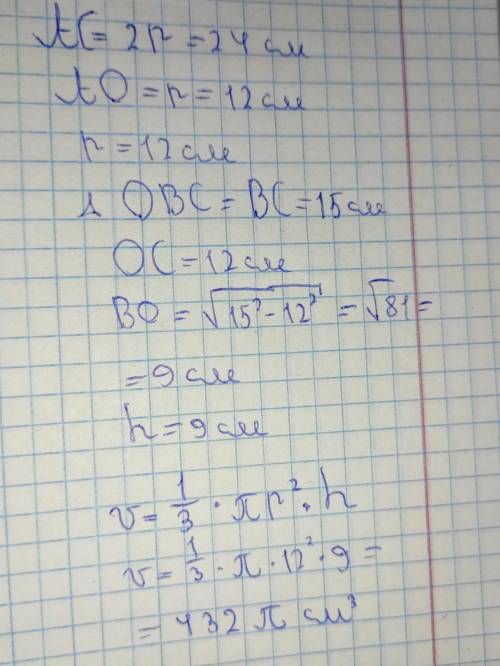 AC = 2r = 24 см
AO = r = 12 см
r = 12 см
Δ OBC = BC = 15 см
OC = 12 см
BO = √15² - 12² = √81 =
= 9 см
h = 9 см
v = 1/3 · πr² · h
v = 1/3 · π · 12² · 9 =
= 432 π см³